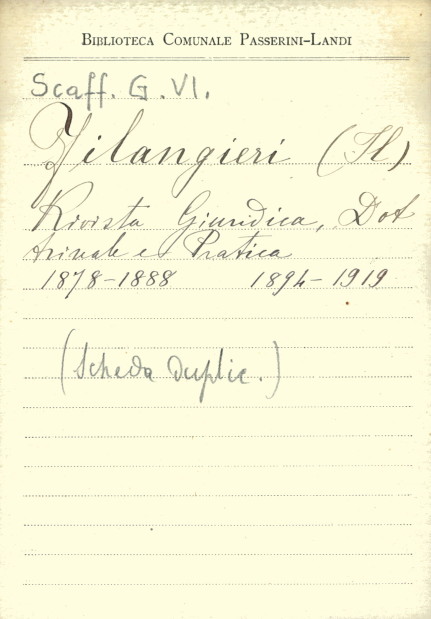 BIBLIOTECA COMUNALE PASSERINI-LANDI
Scaff. G. VI.
Filangieri (Il)
Rivista Giuridica, Dot
trinale e Pratica
1878-1888 1894-1919
(Scheda duplic.)